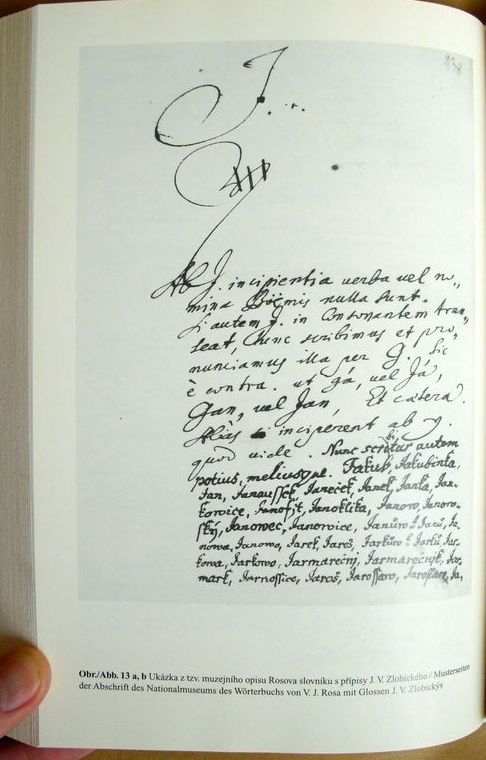 J...
Ab J. incipientia verba vel no-
mina Boëmis nulla sunt.
Si autem J. in Consonantem tran-
seat, tunc scribimus et pro-
nunciamus illa per G. sic
è contra. ut gá, vel Já,
Gan, vel Jan, Et cætera.
Aliàs si inciperent ab y.
quod vide. Nunc scribitur autem
potius, meliusque. Jakub, Jakubinka,
Jan, Janaussek, Janeček, Janek, Janka, Jan-
kowice, Janofit, Janoklika, Janow, Janow-
ský, Janowec, Janowice, Janůw
nowa, Janowo, Jarek, Jareš, Jarkůw
kowa, Jarkowo, Jarmareční, Jarmarečnjk, Jar-
mark, Jarnossice, Jaroš, Jarossowo, Ja,
Obr./Abb. 13 a, b Ukázka z tzv. muzejního opisu Rosova slovníku s přípisy J. V. Zlobického / Musterseiten
der Abschrift des Nationalmuseums des Wörterbuchs von V. J. Rosa mit Glossen J. V. Zlobickýs